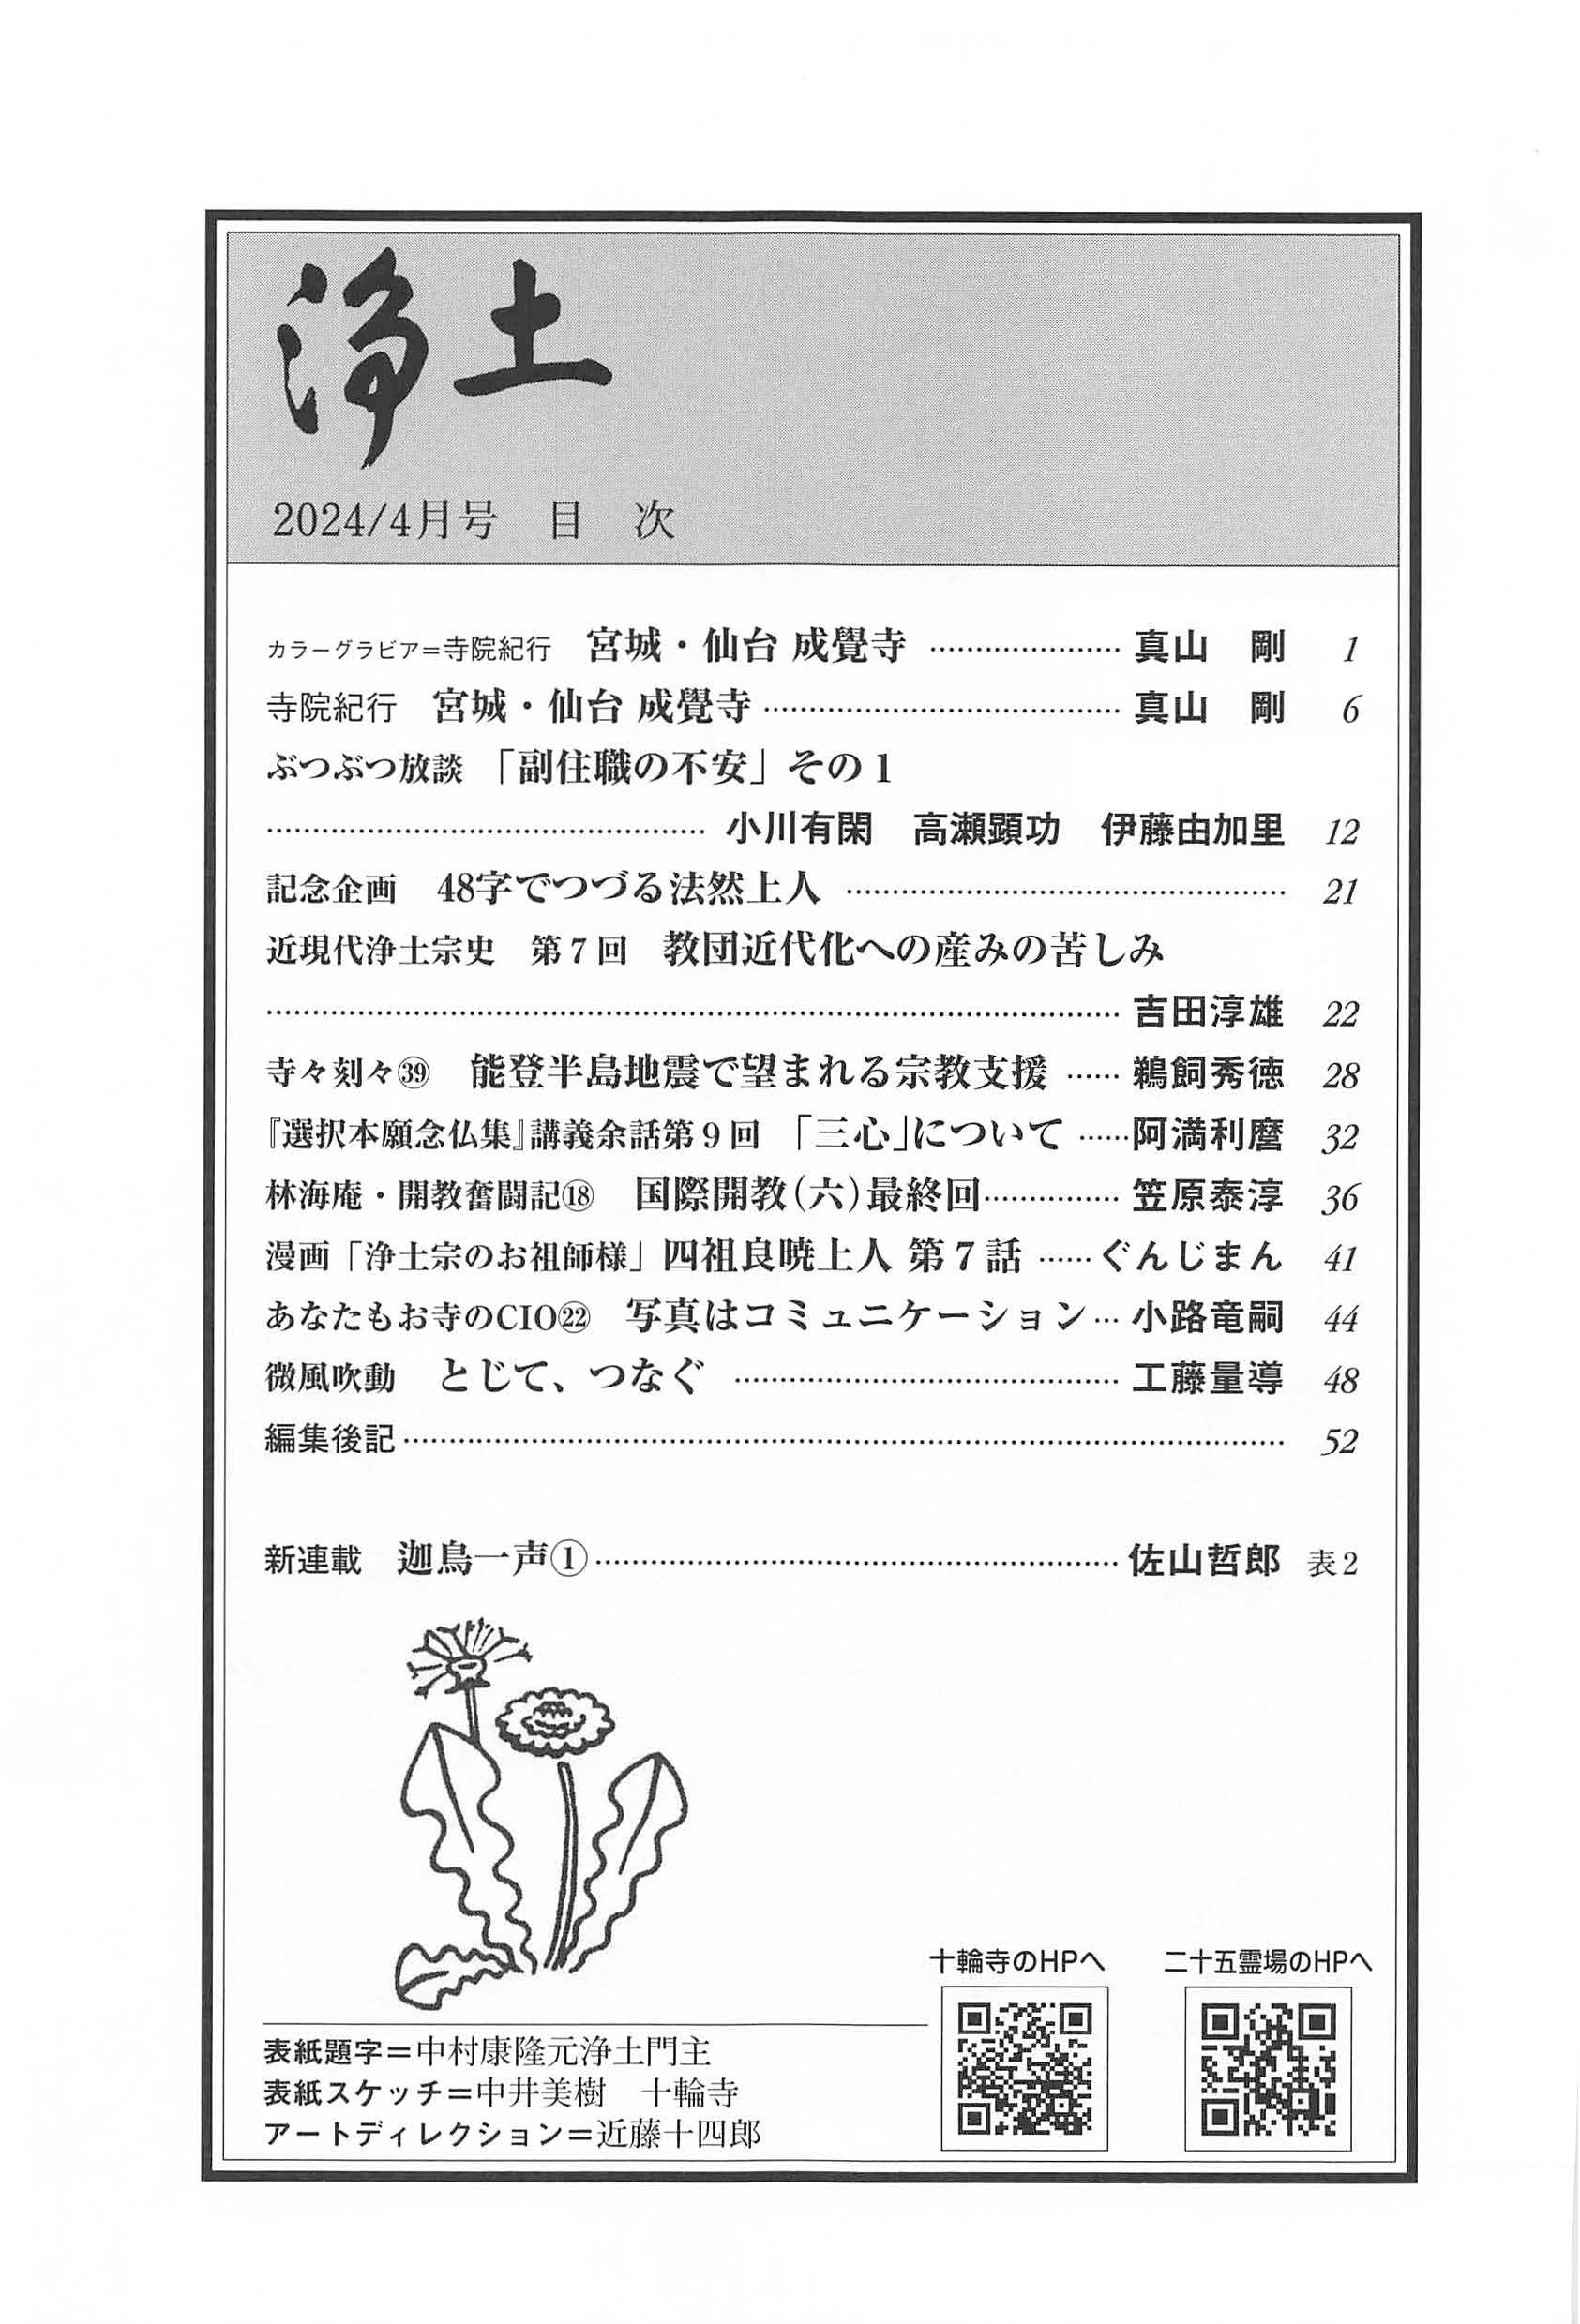 浄土
2024/4月号　目　次
カラーグラビア=寺院紀行　宮城・仙台 成覺寺 …………………… 真山　剛　1
寺院紀行　宮城・仙台 成覺寺 …………………………………… 真山　剛　6
ぶつぶつ放談　「副住職の不安」その1
…………………………………………… 小川有閑　高瀬顕功　伊藤由加里　12
記念企画　48字でつづる法然上人 …………………………………………… 21
近現代浄土宗史　第7回　教団近代化への産みの苦しみ
…………………………………………………………………………… 吉田淳雄　22
寺々刻々㊴　能登半島地震で望まれる宗教支援 …… 鵜飼秀徳　28
『選択本願念仏集』講義余話第9回　「三心」について ……阿満利麿　32
林海庵・開教奮闘記⑱　国際開教(六)最終回…………… 笠原泰淳　36
漫画「浄土宗のお祖師様」四祖良暁上人 第7話 …… ぐんじまん　41
あなたもお寺のCIO㉒　写真はコミュニケーション… 小路竜嗣　44
微風吹動　とじて、つなぐ …………………………………… 工藤量導　48
編集後記………………………………………………………………………… 52
新連載　迦鳥一声①…………………………………………………… 佐山哲郎　表2
十輪寺のHPへ
二十五霊場のHPへ
表紙題字=中村康隆元浄土門主
表紙スケッチ=中井美樹　十輪寺
アートディレクション=近藤十四郎